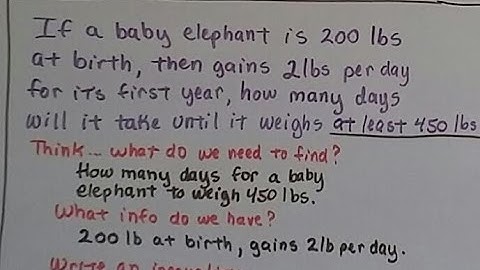 If a baby elephant is 200 lbs
at birth, then gains 2lbs per day
for its first year, how many days
will it take until it weighs at least 450 lbs
Think... what do we need to find?
How many days for a baby
elephant to weigh 450 lbs.
What info do we have?
200 lb at birth, gains 2lb per day.
Write an